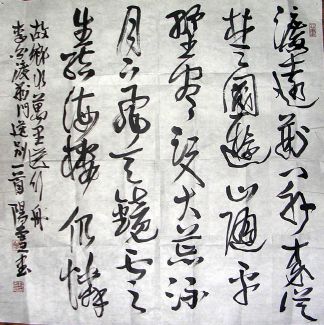 渡遠荆門外來從
楚國遊山隨平
野盡江入大荒流
月下飛天鏡雲
生結海樓仍憐
故鄉水萬里送行舟
李白渡荆門送別一首 陽書